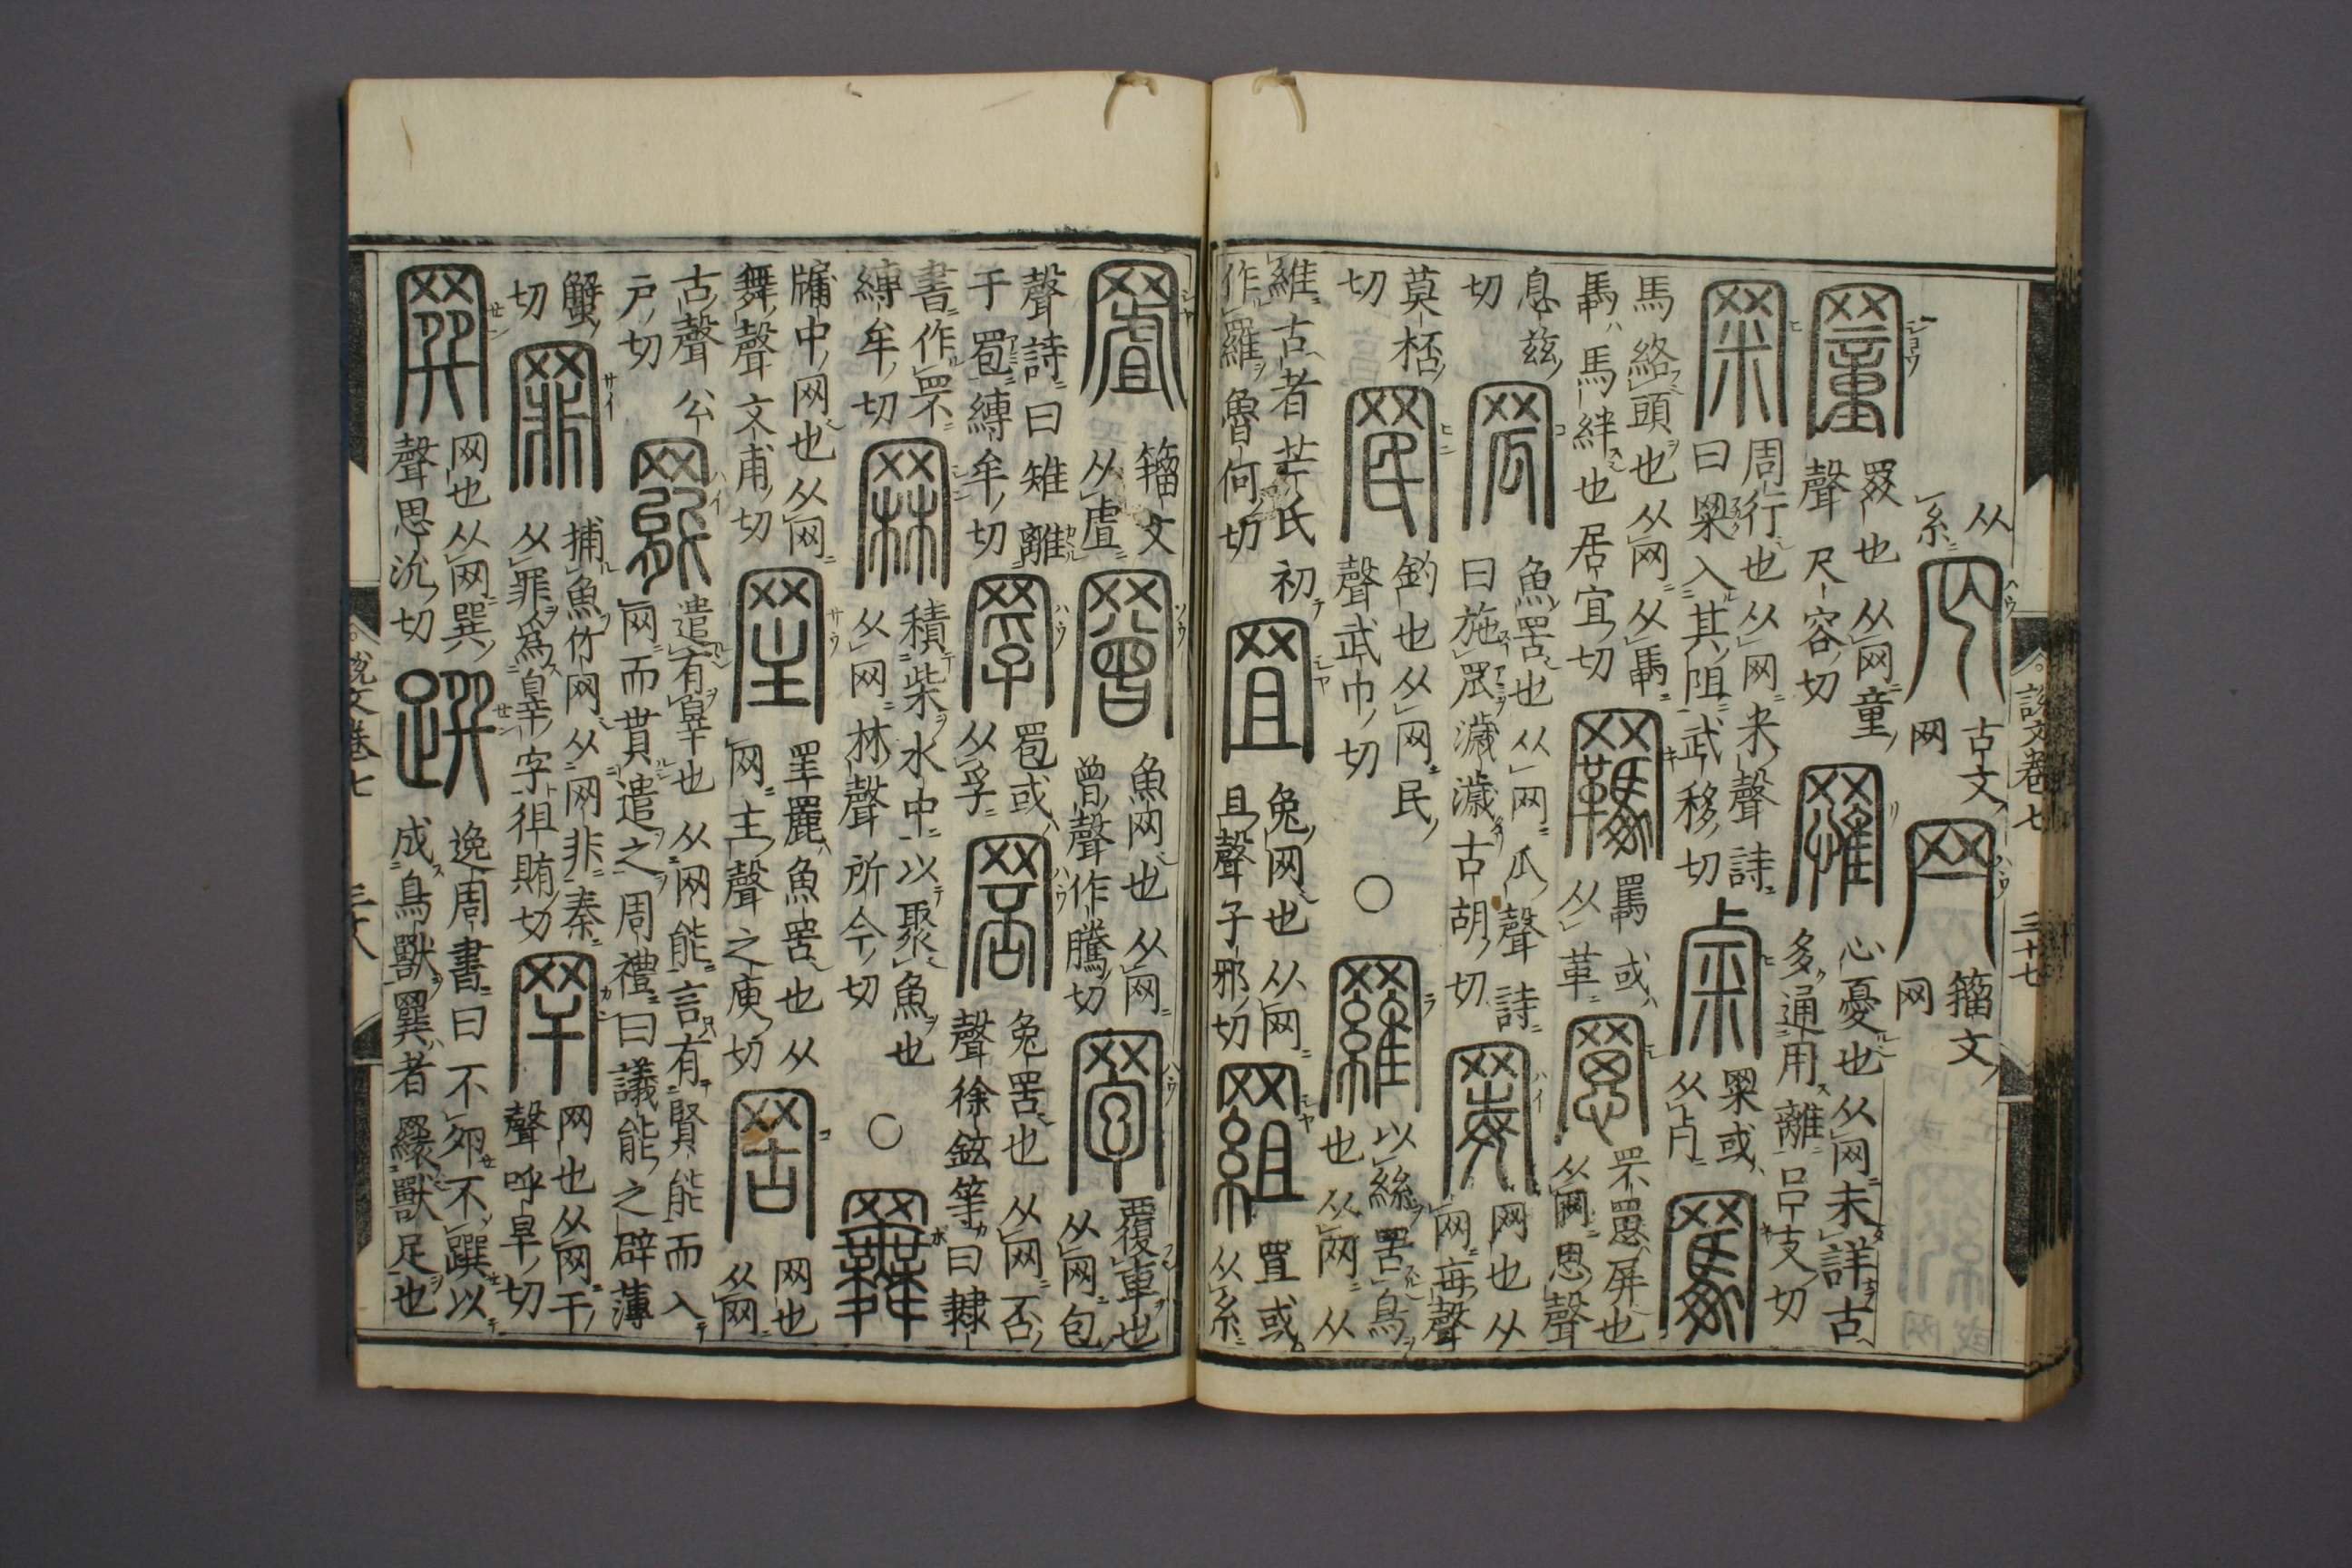 从糸 古文网 籒文网
罿 罬也从网童聲尺容切 罹 心憂也从网未詳古多通用離呂支切
罙 周行也从网米聲詩曰罙入其阻武移切 罙或从
馬絡頭也从网从馽馽馬絆也居宜切 羈 或从革 罳 罘罳屏也从网思聲
息兹切 罛 魚罟也从网瓜聲詩曰施罛濊濊古胡切 网也从网每聲
莫桮切 罠 釣也从网民聲武巾切 ○ 羅 以絲罟鳥也从网从
維古者芒氏初作羅魯何切 罝 兔网也从网且聲子邪切 罝或从糸
說文卷七 三十七
籒文从虘 罾 魚网也从网曾聲作騰切 覆車也从网包
聲詩曰雉離于䍖縛牟切 罦 䍖或从孚 兔罟也从网否聲徐鉉等曰隸
書作罘縛牟切 罧 積柴水中以聚魚也从网林聲所今切 ○
牖中网也从网舞聲文甫切 罜 罜䍡魚罟也从网主聲之庾切 罟 网也从网
古聲公戶切 罷 遣有辠也从网能言有賢能而入网而貫遣之周禮曰議能之辟薄
蟹切 罪 捕魚竹网从网非秦以罪爲辠字徂賄切 罕 网也从网干聲呼旱切
网也从网巽聲思沇切 逸周書曰不卵不以成鳥獸者獸足也
說文卷七 三十八